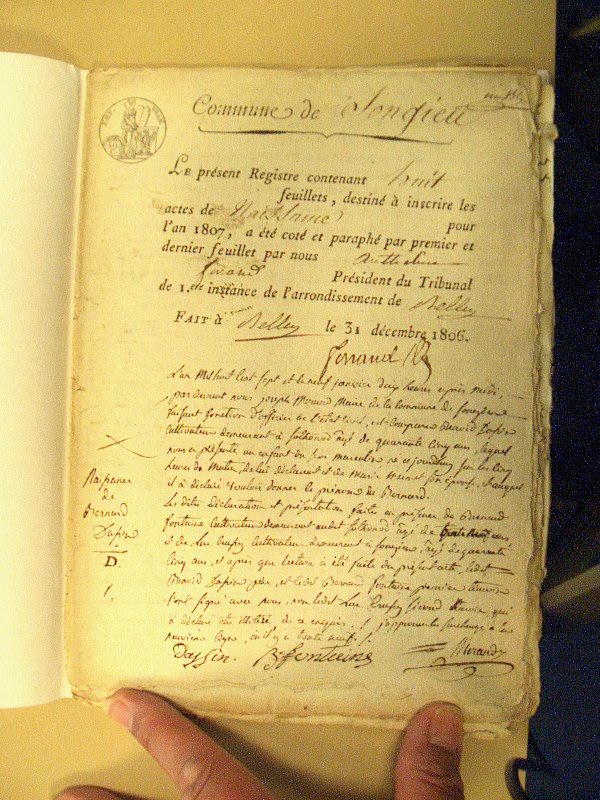 Commune de Songieu
Le présent Registre contenant huit
feuillets, destiné à inscrire les
actes de Naissance pour
l'an 1807, a été coté et paraphé par premier et
dernier feuillet par nous Anthelme
ferrand Président du Tribunal
de 1.ère instance de l'arrondissement de Belley
Fait à Belley le 31 décembre 1806.
ferrand
L'an mil huit cent sept et le neuf janvier deux heures après midi,
pardevant nous joseph Morand Maire de la commune de Songieu
faisant fonction d'officier de l'état civil, est comparu Bernard Dassin
cultivateur demeurant à Sothonod âgé de quarante cinq ans, lequel
nous a présenté un enfant du sexe masculin né ce jourd'hui sur les cinq
heures du matin, de lui déclarant et de Marie son épouse, et auquel
il a déclaré vouloir donner le prénom de Bernard.
les dites déclaration et présentation faites en présence de Bernard
fontaine cultivateur demeurant audit Sothonod âgé de ans
et de Luc cultivateur demeurant à Songieu, âgé de quarante
cinq ans, et après que lecture a été faite du présent acte, ledit
Bernard Dassin père, et ledit Bernard fontaine premier témoin
l'ont signé avec nous, non ledit Luc second témoin qui
a déclaré être illitéré de ce enquis, j'approuve la surcharge à la
neuvième ligne, où il y a trente neuf.
Dassin. B fontaine Morand
Naissance
de
Bernard
Dassin
D.
1.